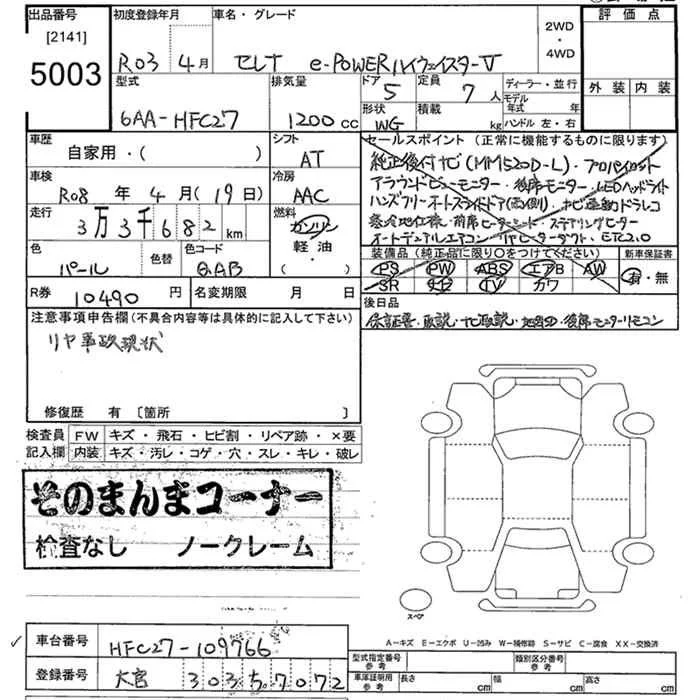 出品番号 初度登録年月 車名・グレード 2WD・4WD 評価点
[2141]
5003
R03年 4月 セレナ e-POWERハイウェイスターV
型式 排気量 ドア 5 定員 7人 ディーラー・並行 外装 内装
6AA-HFC27 1200cc 形状 WG 積載 kg モデル年式 年
ハンドル 左・右
車歴 シフト セールスポイント (正常に機能するものに限ります)
自家用・( ) AT
純正後付ナビ(MM520D-L)・プロパイロット
車検 冷房 アラウンドビューモニター・後席モニター・LEDヘッドライト
R08年 4月(19日) AAC ハンズフリーオートスライドドア(両側)・ナビ連動ドラレコ
走行 燃料 寒冷地仕様・前席ヒーターシート・ステアリングヒーター
3万3千682km ガソリン オートデュアルエアコン・リヤヒーターダクト・ETC2.0
軽油・
( )
色 色替 色コード 装備品 (純正品に限り○をつけてください) 新車保証書
パール QAB PS PW ABS エアB AW 有・無
SR ナビ TV カワ
R券 10490円 名変期限 月 日 後日品
保証書・取説・ナビ取説・地図SD・後席モニターリモコン
注意事項申告欄(不具合内容等は具体的に記入して下さい)
リヤ事故現状
修復歴 有 [箇所 ]
検査員 FW キズ・飛石・ヒビ割・リペア跡・×要
記入欄 内装 キズ・汚レ・コゲ・穴・スレ・キレ・破レ
そのまんまコーナー
検査なし ノークレーム
スペア
A-キズ E-エクボ U-凹み W-補修跡 S-サビ C-腐食 XX-交換済
車台番号 HFC27-109766
登録番号 大宮 303 7072
型式指定番号 参考 類別区分番号 参考
車庫証明用 参考 長さ cm 幅 cm 高さ cm